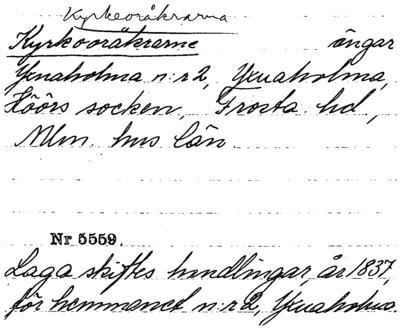 Kyrkoråkrarna
Kyrkoråkrarne ängar
Ynnaholma n:r 2, Ynnaholma,
Höörs socken, Frosta hd,
Mlm. hus län.
Nr 5559.
Laga skiftes handlingar, år 1837,
för hemmanet n:r 2, Ynnaholma.